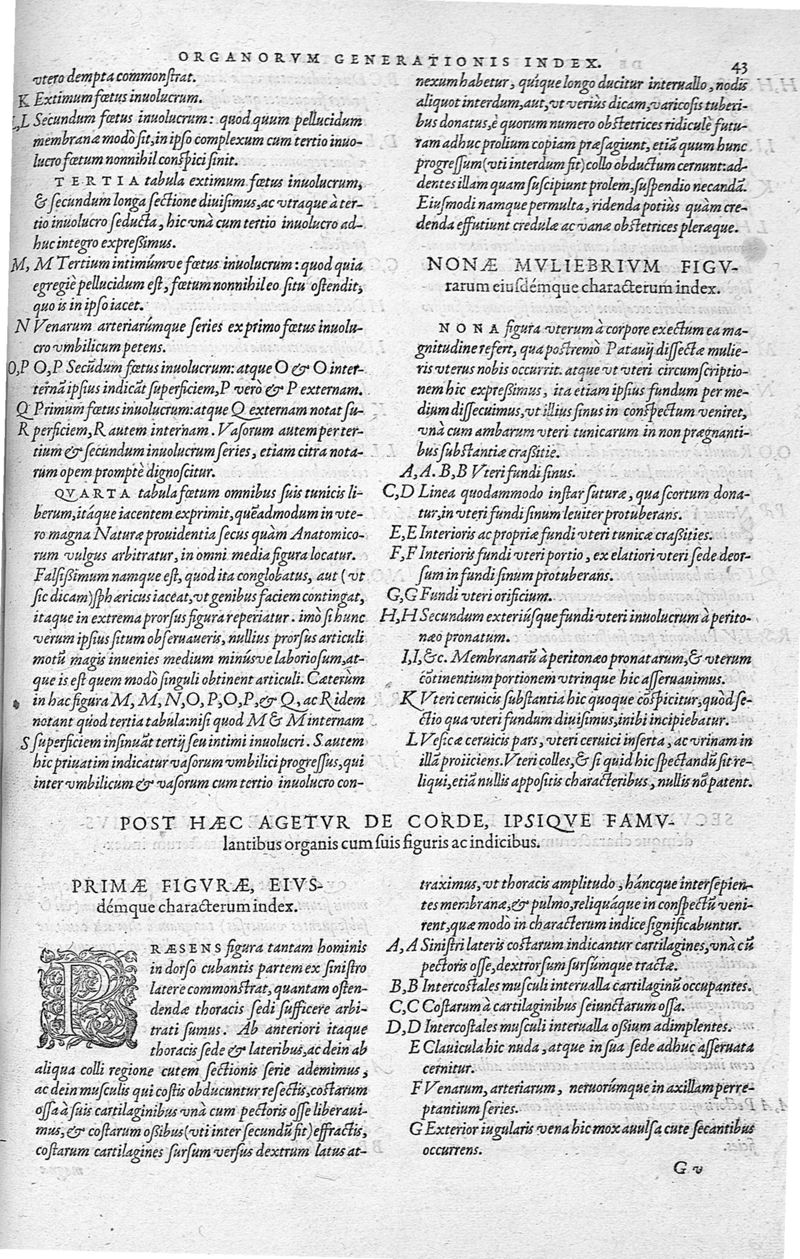 ORGANORVM GENERATIONIS INDEX.
43
vtero dempta commonſtrat.
K Extimum fœtus inuolucrum.
L,L Secundum fœtus inuolucrum: quod quum pellucidum
membranæ modò ſit, in ipſo complexum cum tertio inuo-
lucro fœtum nonnihil conſpici ſinit.
TERTIA tabula extimum fœtus inuolucrum,
& ſecundum longa ſectione diuiſimus, ac vtraque à ter-
tio inuolucro ſeducta, hic vnà cum tertio inuolucro ad-
huc integro expreßimus.
M, M Tertium intimúmve fœtus inuolucrum: quod quia
egregiè pellucidum est, fœtum nonnihil eo ſitu oſtendit,
quo is in ipſo iacet.
N Venarum arteriarúmque ſeries ex primo fœtus inuolu-
cro vmbilicum petens.
O,P O,P Secũdum fœtus inuolucrum: atque O & O inter-
ternã ipſius indicãt ſuperficiem, P verò & P externam.
Q Primum fœtus inuolucrum: atque Q externam notat ſu-
R perficiem, R autem internam. Vaſorum autem per ter-
tium & ſecundum inuolucrum ſeries, etiam citra nota-
rum opem promptè dignoſcitur.
QVARTA tabula fœtum omnibus ſuis tunicis li-
berum, itáque iacentem exprimit, quẽadmodum in vte-
ro magna Naturæ prouidentia ſecus quàm Anatomico-
rum vulgus arbitratur, in omni media figura locatur.
Falſißimum namque eſt, quod ita conglobatus, aut (vt
ſic dicam) ſphæricus iaceat, vt genibus faciem contingat,
itaque in extrema prorſus figura reperiatur. imò ſi hunc
verum ipſius ſitum obſeruaueris, nullius prorſus articuli
motũ magis inuenies medium minúsve laborioſum, at-
que is est quem modò ſinguli obtinent articuli. Cæterùm
in hac figura M, M, N, O, P, O, P, & Q, ac R idem
notant quòd tertia tabula: niſi quod M & M internam
S ſuperficiem inſinuãt tertij ſeu intimi inuolucri. S autem
hic priuatim indicatur vaſorum vmbilici progreſſus, qui
inter vmbilicum & vaſorum cum tertio inuolucro con-
nexum habetur, quíque longo ducitur interuallo, nodis
aliquot interdum, aut, vt veriùs dicam, varicoſis tuberi-
bus donatus, è quorum numero obſtetrices ridiculè futu-
ram adhuc prolium copiam præſagiunt, etiã quum hunc
progreſſum (vti interdum fit) collo obductum cernunt: ad-
dentes illam quam ſuſcipiunt prolem, ſuſpendio necandã.
Eiuſmodi namque permulta, ridenda potiùs quàm cre-
denda effutiunt credulæ ac vanæ obſtetrices pleræque.
NONÆ MVLIEBRIVM FIGV-
rarum eiuſdémque characterum index.
NONA figura vterum à corpore exectum ea ma-
gnitudine refert, qua poſtremò Patauij diſſectæ mulie-
ris vterus nobis occurrit. atque vt vteri circumſcriptio-
nem hic expreßimus, ita etiam ipſius fundum per me-
dium diſſecuimus, vt illius ſinus in conſpectum veniret,
vnà cum ambarum vteri tunicarum in non prægnanti-
bus ſubſtantiæ craßitie.
A, A. B, B Vteri fundi ſinus.
C, D Linea quodammodo inſtar ſuturæ, qua ſcortum dona-
tur, in vteri fundi ſinum leuiter protuberans.
E, E Interioris ac propriæ fundi vteri tunicæ craßities.
F, F Interioris fundi vteri portio, ex elatiori vteri ſede deor-
ſum in fundi ſinum protuberans.
G, G Fundi vteri orificium.
H, H Secundum exteriúſque fundi vteri inuolucrum à perito-
næo pronatum.
I, I, &c. Membranarũ à peritonæo pronatarum, & vterum
cõtinentium portionem vtrinque hic aſſeruauimus.
K Vteri ceruicis ſubſtantia hic quoque cõſpicitur, quòd ſe-
ctio qua vteri fundum diuiſimus, inibi incipiebatur.
L Veſicæ ceruicis pars, vteri ceruici inſerta, ac vrinam in
illã proiiciens. Vteri colles, & ſi quid hic ſpectandũ ſit re-
liqui, etiã nullis appoſitis characteribus, nullis nõ patent.
POST HÆC AGETVR DE CORDE, IPSIQVE FAMV-
lantibus organis cum ſuis figuris ac indicibus.
PRIMÆ FIGVRÆ, EIVS-
démque characterum index.
PRÆSENS figura tantam hominis
in dorſo cubantis partem ex ſiniſtro
latere commonſtrat, quantam oſten-
dendæ thoracis ſedi ſufficere arbi-
trati ſumus. Ab anteriori itaque
thoracis ſede & lateribus, ac dein ab
aliqua colli regione cutem ſectionis ſerie ademimus,
ac dein muſculis qui coſtis obducuntur reſectis, coſtarum
oſſa à ſuis cartilaginibus vnà cum pectoris oſſe liberaui-
mus, & coſtarum oßibus (vti inter ſecundũ fit) effractis,
coſtarum cartilagines ſurſum verſus dextrum latus at-
traximus, vt thoracis amplitudo, háncque interſepien-
tes membranæ, & pulmo, reliquáque in conſpectũ veni-
rent, quæ modò in characterum indice ſignificabuntur.
A, A Siniſtri lateris coſtarum indicantur cartilagines, vnà cũ
pectoris oſſe, dextrorſum ſurſúmque tractæ.
B, B Intercoſtales muſculi interualla cartilaginũ occupantes.
C, C Coſtarum à cartilaginibus ſeiunctarum oſſa.
D, D Intercoſtales muſculi interualla oſſium adimplentes.
E Clauicula hic nuda, atque in ſua ſede adhuc aſſeruata
cernitur.
F Venarum, arteriarum, neruorúmque in axillam perre-
ptantium ſeries.
G Exterior iugularis vena hic mox auulſa cute ſecantibus
occurrens.
G v